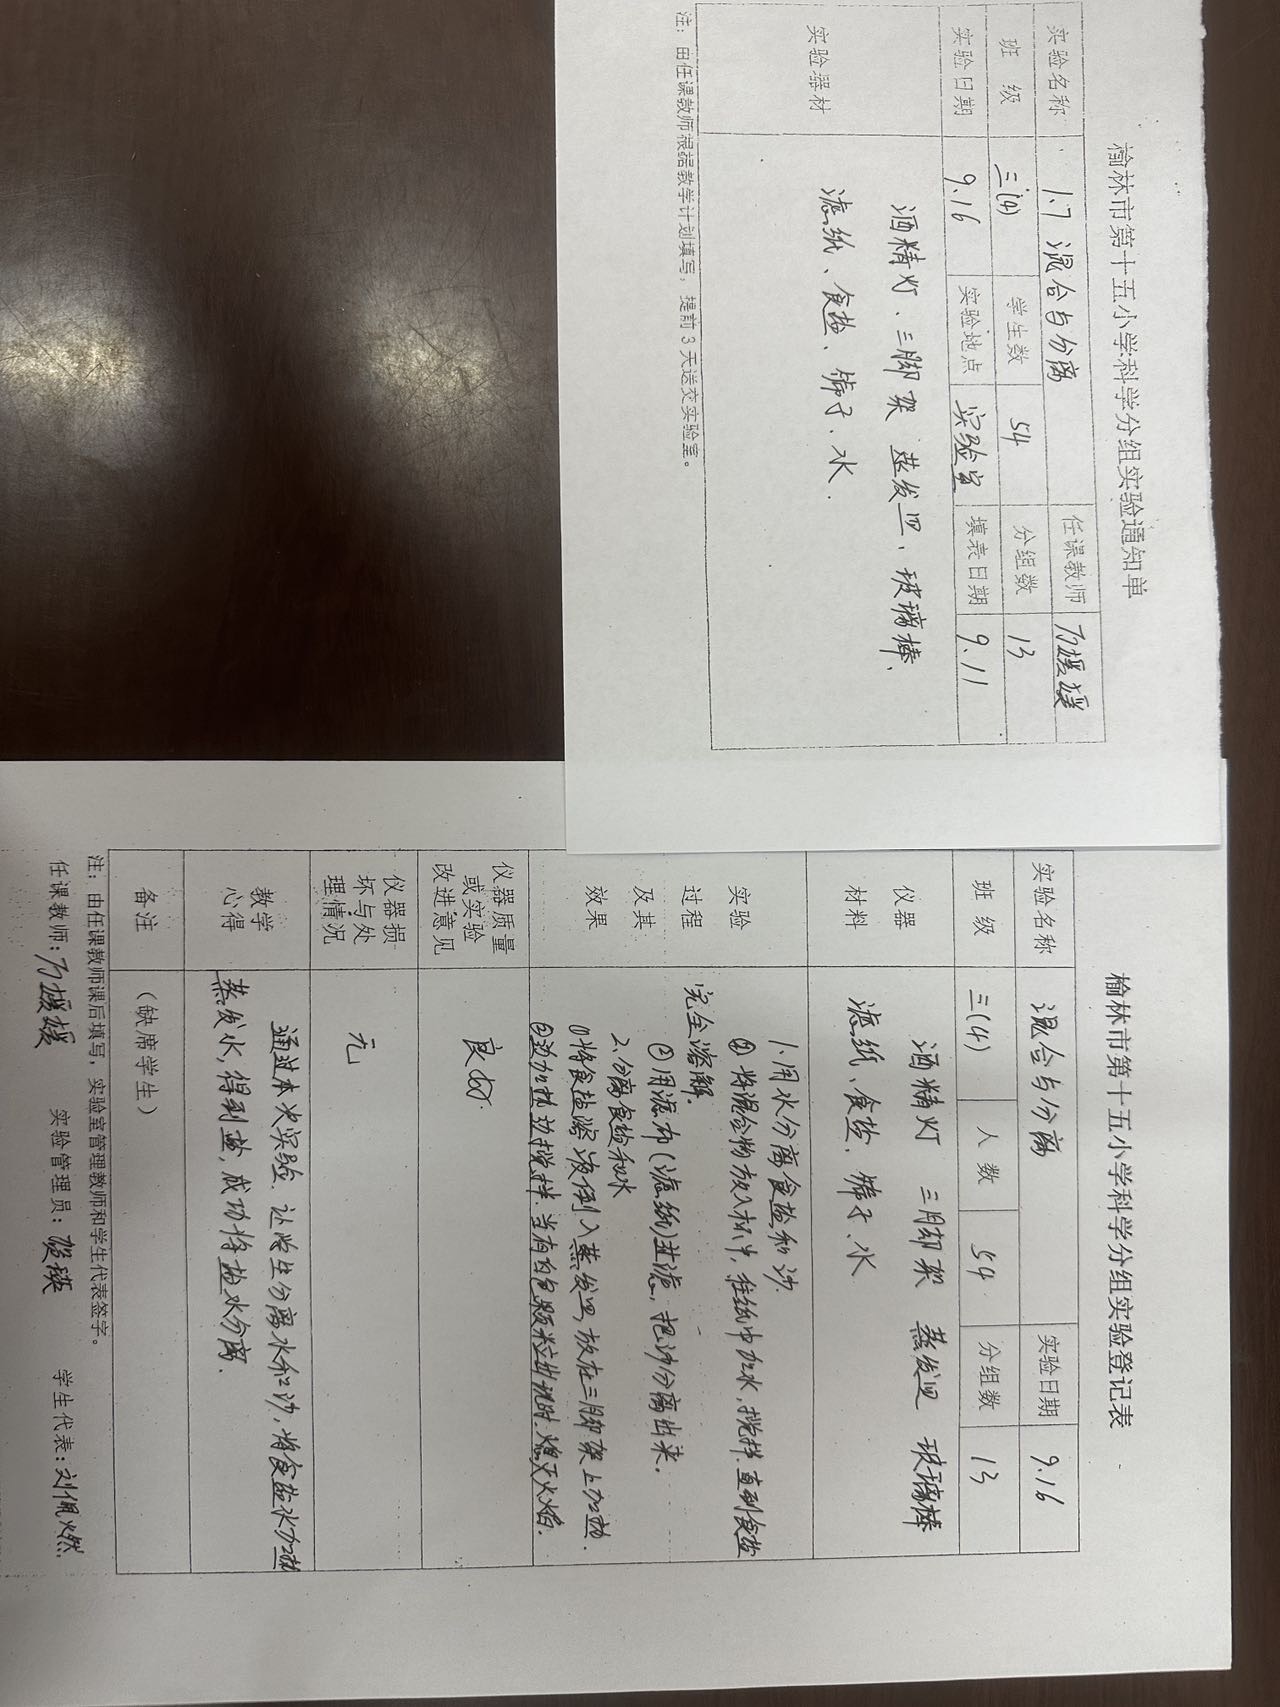 榆林市第十五小学科学分组实验通知单
实验名称 1.7 混合与分离 任课教师 万媛媛
班 级 三(4) 学生数 54 分组数 13
实验日期 9.16 实验地点 实验室 填表日期 9.11
实验器材 酒精灯、三脚架 蒸发皿、玻璃棒、
滤纸、食盐、筛子、水.
注：由任课教师根据教学计划填写，提前 3 天送交实验室。
榆林市第十五小学科学分组实验登记表
实验名称 混合与分离 实验日期 9.16
班 级 三(4) 人 数 54 分组数 13
仪器
材料
酒精灯 三脚架 蒸发皿 玻璃棒
滤纸、食盐、筛子、水
实验
过程
及其
效果
1.用水分离食盐和沙.
① 将混合物放入杯中,往纸巾加水,搅拌.直到食盐
完全溶解.
② 用滤布(滤纸)过滤,把沙分离出来.
2.分离食盐和水
①将食盐溶液倒入蒸发皿,放在三脚架上加热.
②边加热边搅拌.当有白色颗粒出现时.熄灭火焰.
仪器质量
或实验
改进意见
良好.
仪器损
坏与处
理情况
无
教学
心得
通过本次实验.让学生分离水和沙,将食盐水加热
蒸发水,得到盐,成功将盐水分离.
备注 （缺席学生）
注：由任课教师课后填写，实验室管理教师和学生代表签字。
任课教师：万媛媛 实验管理员：贺瑛 学生代表：刘佩燃